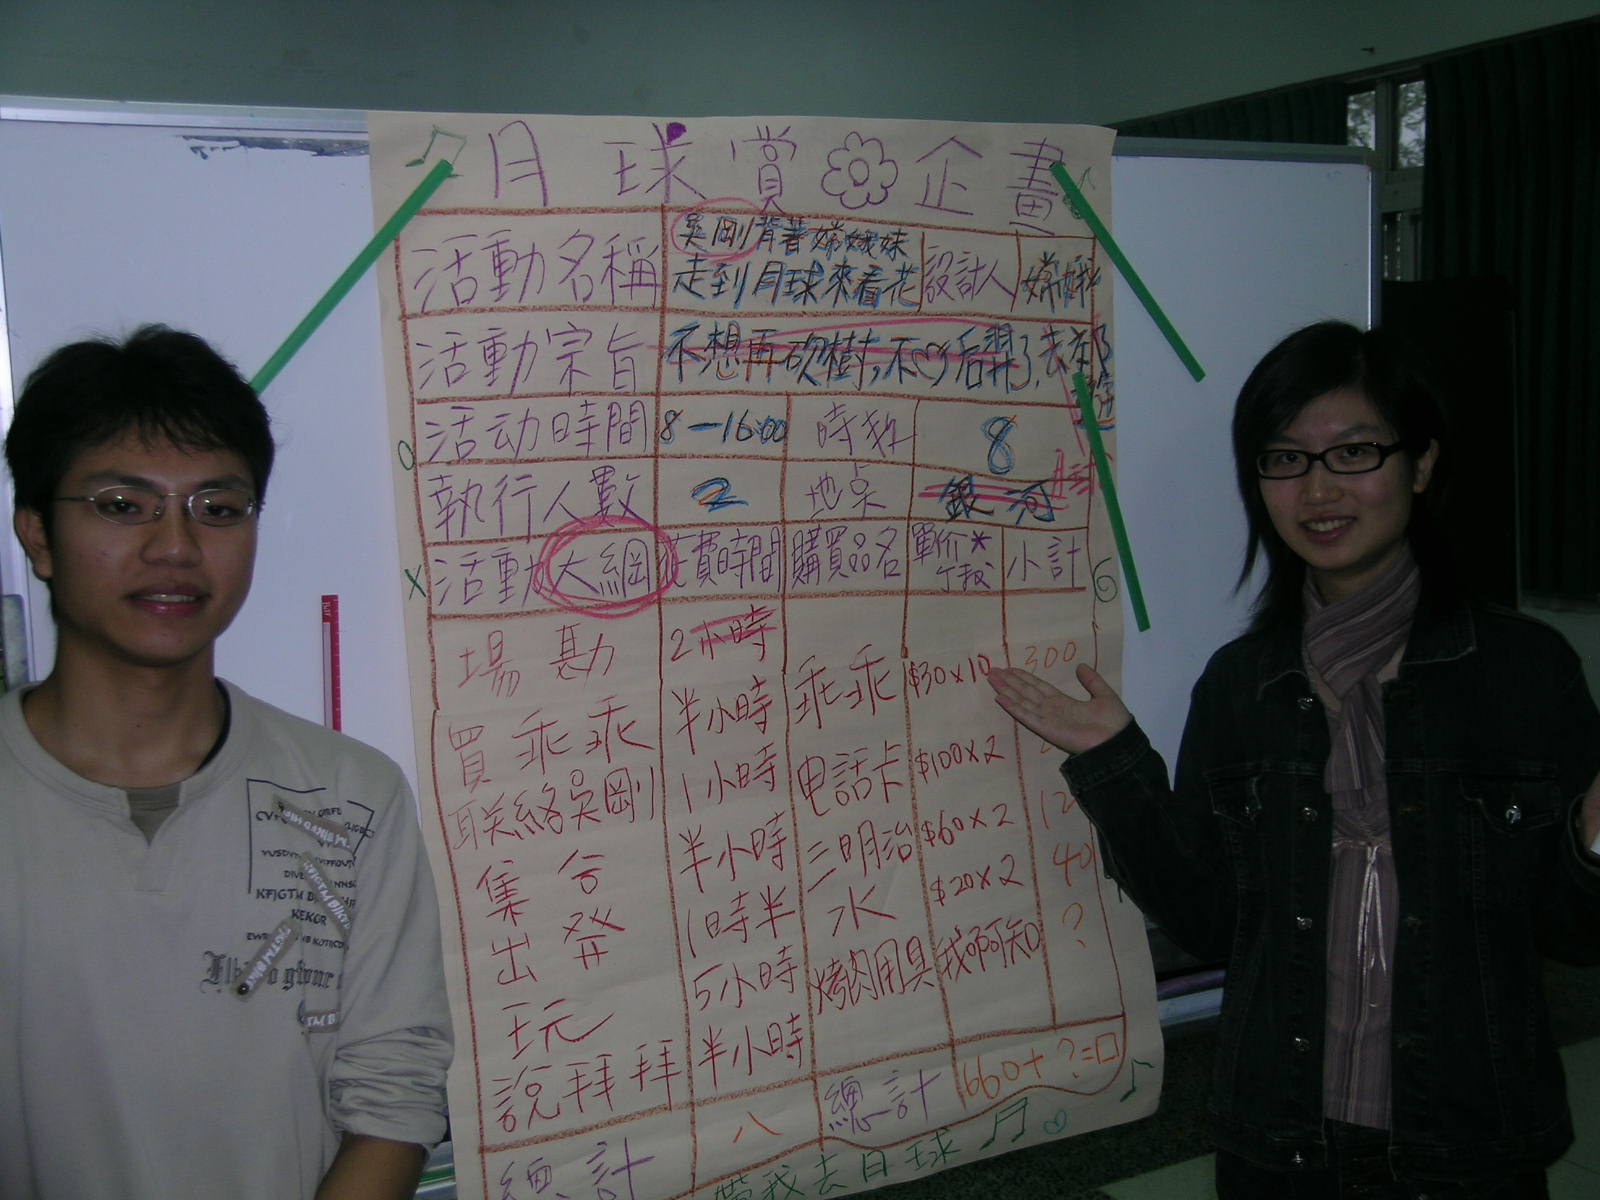 月球賞 企畫
活動名稱 吳剛背著嫦娥妹 走到月球來看花 設計人 嫦娥
活動宗旨 不想再砍樹,不 后羿了,
活动時間 8-16:00 時数 8
執行人數 2 地点 銀河
活動大綱 花費時間 購買品名 單价* 小計
場勘 2小時
買乖乖 半小時 乖乖 $30×10 300
联絡吳剛 1小時 电話卡 $100×2
集合 半小時 三明治 $60×2
出発 1時半 水 $20×2 40
玩 5小時 烤肉用具 我啊知 ?
說拜拜 半小時
總計 八 總計 660+?=□
帶我去月球
KEKOR